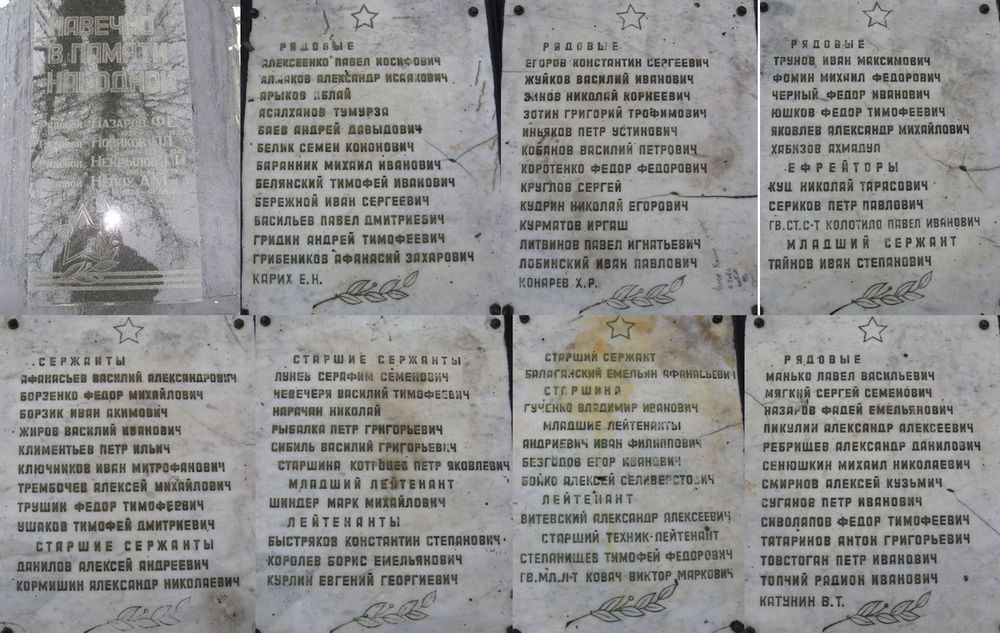 НАВЕЧНО
В ПАМЯТИ
НАРОДНОЙ
Рядовой НАЗАРОВ Ф.Е.
Рядовой НОВИКОВ
Рядовой НЕКРЫЛОВ
РЯДОВЫЕ
АЛЕКСЕЕНКО ПАВЕЛ ИОСИФОВИЧ
АЛМАКОВ АЛЕКСАНДР ИСААКОВИЧ
АРЫКОВ АБЛАЙ
АСАЛХАНОВ ТУМУРЗА
БАЕВ АНДРЕЙ ДАВЫДОВИЧ
БЕЛЫК СЕМЕН КОНОНОВИЧ
БАРАННИК МИХАИЛ ИВАНОВИЧ
БЕЛЯНСКИЙ ТИМОФЕЙ ИВАНОВИЧ
БЕРЕЖНОЙ ИВАН СЕРГЕЕВИЧ
ВАСИЛЬЕВ ПАВЕЛ ДМИТРИЕВИЧ
ГРИДИН АНДРЕЙ ТИМОФЕЕВИЧ
ГРИБЕНИКОВ АФАНАСИЙ ЗАХАРОВИЧ
КАРИХ Е.Н.
РЯДОВЫЕ
ЕГОРОВ КОНСТАНТИН СЕРГЕЕВИЧ
ЖУЙКОВ ВАСИЛИЙ ИВАНОВИЧ
НИКОЛАЙ КОРНЕЕВИЧ
ЗОТИН ГРИГОРИЙ ТРОФИМОВИЧ
ИНЬЯКОВ ПЕТР УСТИНОВИЧ
КОБАНОВ ВАСИЛИЙ ПЕТРОВИЧ
КОРОТЕНКО ФЕДОР ФЕДОРОВИЧ
КРУГЛОВ СЕРГЕЙ
КУДРИН НИКОЛАЙ ЕГОРОВИЧ
КУРМАТОВ ИРГАШ
ЛИТВИНОВ ПАВЕЛ ИГНАТЬЕВИЧ
ЛОБИНСКИЙ ИВАН ПАВЛОВИЧ
КОНАРЕВ Х.Р.
РЯДОВЫЕ
ТРУНОВ ИВАН МАКСИМОВИЧ
ФОМИН МИХАИЛ ФЕДОРОВИЧ
ЧЕРНЫЙ ФЕДОР ИВАНОВИЧ
ЮШКОВ ФЕДОР ТИМОФЕЕВИЧ
ЯКОВЛЕВ АЛЕКСАНДР МИХАЙЛОВИЧ
ХАБИЗОВ АХМАДУЛ
ЕФРЕЙТОРЫ
КУЦ НИКОЛАЙ ТАРАСОВИЧ
СЕРИКОВ ПЕТР ПАВЛОВИЧ
ГВ.СТ.С-Т КОЛОТИЛО ПАВЕЛ ИВАНОВИЧ
МЛАДШИЙ СЕРЖАНТ
ТАЙНОВ ИВАН СТЕПАНОВИЧ
СЕРЖАНТЫ
АФАНАСЬЕВ ВАСИЛИЙ АЛЕКСАНДРОВИЧ
БОРЗЕНКО ФЕДОР МИХАЙЛОВИЧ
БОРЗИК ИВАН АКИМОВИЧ
ЖИРОВ ВАСИЛИЙ ИВАНОВИЧ
КЛИМЕНТЬЕВ ПЕТР ИЛЬИЧ
КЛЮЧНИКОВ ИВАН МИТРОФАНОВИЧ
ТРЕМБОЧЕВ АЛЕКСЕЙ МИХАЙЛОВИЧ
ТРУШИН ФЕДОР ТИМОФЕЕВИЧ
УШАКОВ ТИМОФЕЙ ДМИТРИЕВИЧ
СТАРШИЕ СЕРЖАНТЫ
ДАНИЛОВ АЛЕКСЕЙ АНДРЕЕВИЧ
КОРМИШИН АЛЕКСАНДР НИКОЛАЕВИЧ
СТАРШИЕ СЕРЖАНТЫ
ЛУНЕВ СЕРАФИМ СЕМЕНОВИЧ
ЧЕВЕЧЕРЯ ВАСИЛИЙ ТИМОФЕЕВИЧ
НАРАЧАН НИКОЛАЙ
РЫБАЛКА ПЕТР ГРИГОРЬЕВИЧ
СИБИЛЬ ВАСИЛИЙ ГРИГОРЬЕВИЧ
СТАРШИНА ПЕТР ЯКОВЛЕВИЧ
МЛАДШИЙ ЛЕЙТЕНАНТ
ШИНДЕР МАРК МИХАЙЛОВИЧ
ЛЕЙТЕНАНТЫ
БЫСТРЯКОВ КОНСТАНТИН СТЕПАНОВИЧ
КОРОЛЕВ БОРИС ЕМЕЛЬЯНОВИЧ
КУРЛИН ЕВГЕНИЙ ГЕОРГИЕВИЧ
СТАРШИЙ СЕРЖАНТ
БАЛАГАНСКИЙ ЕМЕЛЬЯН АФАНАСЬЕВИЧ
СТАРШИНА
ГУЧЕНКО ВЛАДИМИР ИВАНОВИЧ
МЛАДШИЕ ЛЕЙТЕНАНТЫ
АНДРИЕВИЧ ИВАН ФИЛИППОВИЧ
БЕЗГОДОВ ЕГОР ИВАНОВИЧ
БОЙКО АЛЕКСЕЙ СЕЛИВЕРСТОВИЧ
ЛЕЙТЕНАНТ
ВИТЕВСКИЙ АЛЕКСАНДР АЛЕКСЕЕВИЧ
СТАРШИЙ ТЕХНИК-ЛЕЙТЕНАНТ
СТЕПАНИЩЕВ ТИМОФЕЙ ФЕДОРОВИЧ
ГВ.МЛ.Л-Т КОВАЧ ВИКТОР МАРКОВИЧ
РЯДОВЫЕ
МАНЬКО ПАВЕЛ ВАСИЛЬЕВИЧ
МЯГКИЙ СЕРГЕЙ СЕМЕНОВИЧ
НАЗАРОВ ФАДЕЙ ЕМЕЛЬЯНОВИЧ
ПИКУЛИН АЛЕКСАНДР АЛЕКСЕЕВИЧ
РЕБРИЩЕВ АЛЕКСАНДР ДАНИЛОВИЧ
СЕНЮШКИН МИХАИЛ НИКОЛАЕВИЧ
СМИРНОВ АЛЕКСЕЙ КУЗЬМИЧ
СУГАНОВ ПЕТР ИВАНОВИЧ
СИВОЛАПОВ ФЕДОР ТИМОФЕЕВИЧ
ТАТАРИНОВ АНТОН ГРИГОРЬЕВИЧ
ТОВСТОГАН ПЕТР ИВАНОВИЧ
ТОПЧИЙ РАДИОН ИВАНОВИЧ
КАТУНИН В.Т.